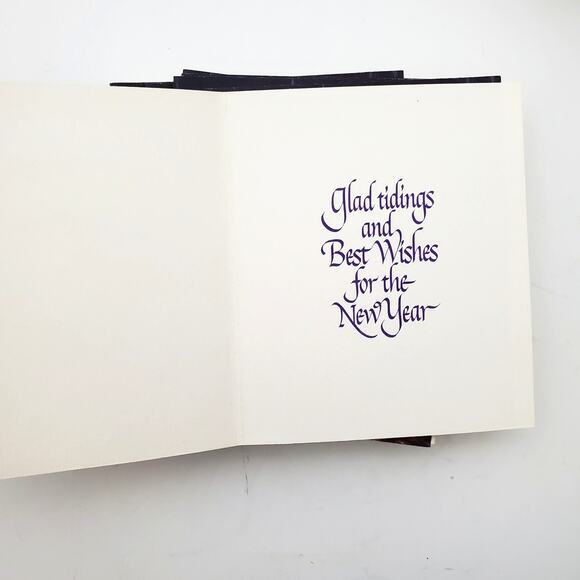 Glad tidings
and
Best Wishes
for the
New Year